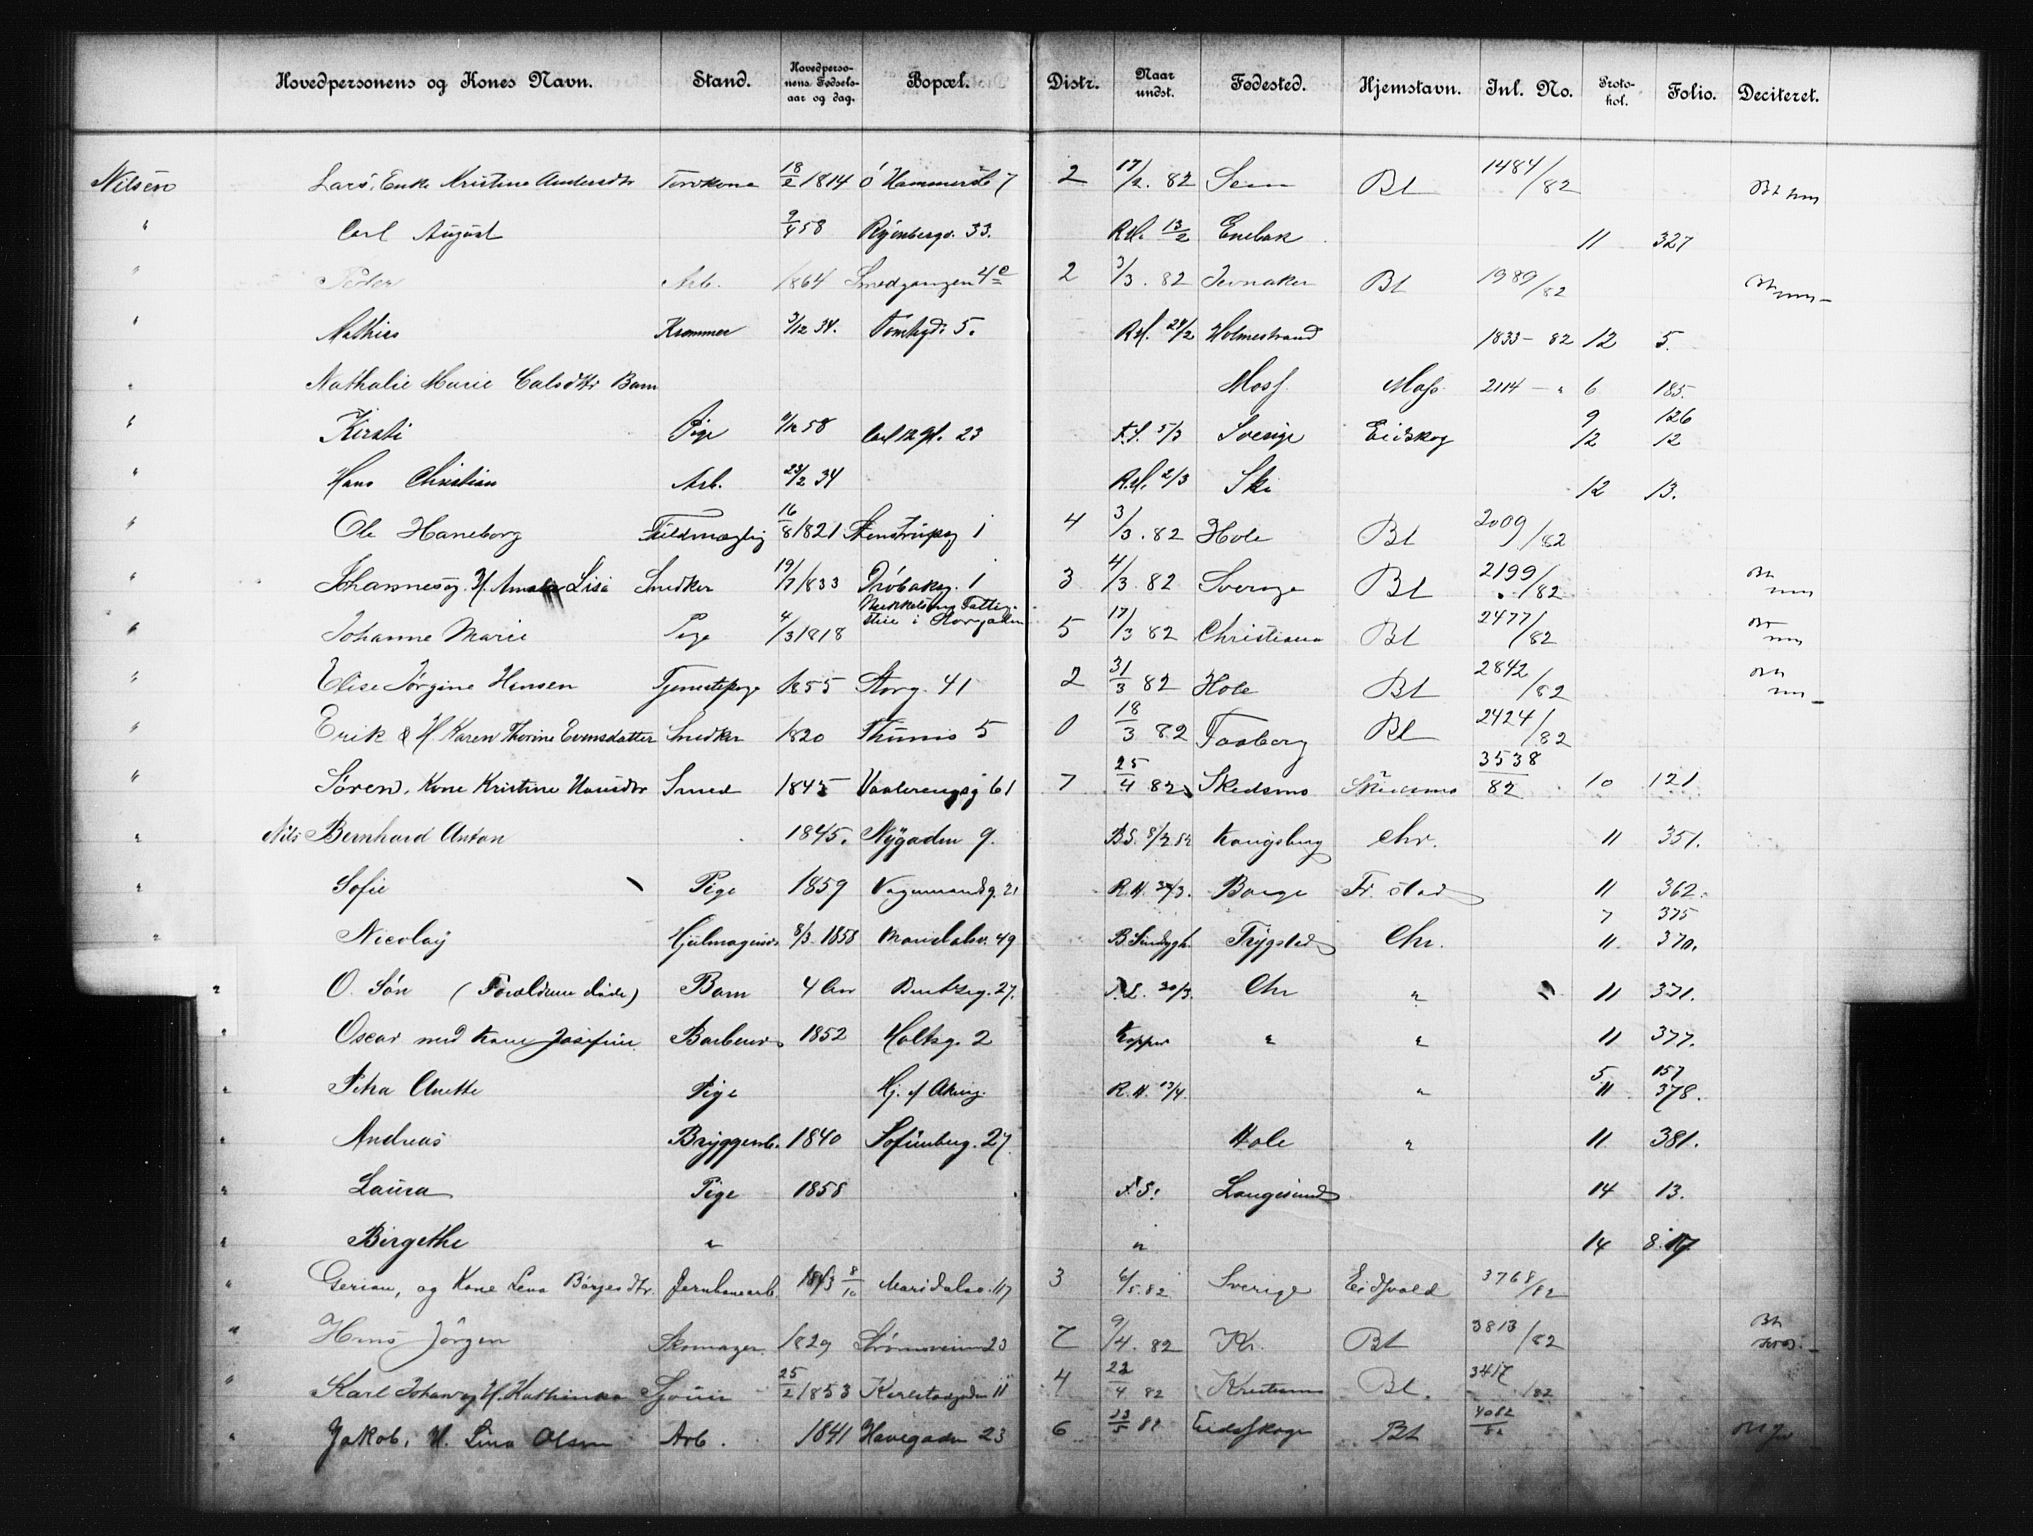 Hovedpersonens og Kones Navn. Stand. Hovedpersonens Fødselsaar og dag. Bopæl. Distr. Naar undst. Fødested. Hjemstavn. Inl. No. Protokol. Folio. Deciteret.
Nilsen Lars, Enke Kristine Andersdtr Torvkone 18/2 1814 7 2 17/2. 82 Sem Bt 1484/82 Bt
" Carl August 9/4 58 33. R.H. 13/2 Enebak 11 327
" Peder Arb. 1864 Smedgangen 4 e 2 3/3. 82 Jevnaker Bt 1989/82
" Mathies Kræmmer 3/12 34. Tomtegd. 5. R.H. 24/2 Holmestrand 1833 - 82 12 5.
" Nathalie Marie Calsdtr Barn Moss. Moss 2114 - " 6 185.
" Kirsti Pige 9/12 58 Carl 12 Gd. 23 F.S. 5/3 Sverige Eidskog 9 12 126 12
" Hans Christian Arb. 23/2 34 R.H. 2/3 Ski 12 13.
" Ole Haneborg Fuldmægtig 16/8 1821 Stenstrupsg 1 4 3/3. 82 Hole Bt 2009/82
" Johannes og H. Lisa Snedker 19/7 1833 Drøbaksg. 1 3 4/3. 82 Sverige Bt 2199/82
" Johanne Marie Pige 4/3 1818 i Storgaden 5 17/3 82 Christiania Bt 2477/82
" Elise Jørgine Hansen Tjenestepige 1855 Storg. 41 2 31/3 82 Hole Bt 2842/82
" Erik & H. Karen Thorine Evensdatter Snedker 1820 Thunes 5 0 18/3 82 Faaberg Bt 2424/82
" Søren, Kone Kristine Hansdtr Smed 1845 Vaalerengsg 61 7 25/4 82 Skedsmo Skedsmo 3538/82 10 121.
" Nils Bernhard Anton 1845. Nygaden 9. B.S. 8/3 82 Kongsberg Chr. 11 351.
" Sofie Pige 1859 Vognmandsg. 21 R.H. 24/3. Borge Fr. stad 11 362.
" Nicolay Hjulmagersv. 8/3. 1858 Maridalsv. 49 B. Sindsygh. Trygstad Chr. 7 11 375 370.
" O. Søn (Forældrene døde) Barn 4 Aar Bentseg. 27. F.S. 20/3. Chr " 11 371.
" Oscar med Kone Josefine Barbersv 1852 Holtsg. 2 Kopper " " 11 377.
" Petra Anette Pige Hj. af Akersg. R.H. 13/4 " 5 11 157 378.
" Andreas Bryggearb. 1840 Sofienberg. 27. Hole " 11 381.
" Laura Pige 1858 F.S. Langesund 14 13.
" Birgethe " " 14 8. 17
" Gerian, og Kone Lena Børjesdtr. Jernbanearb. 1843 8/10 Maridalsv. 117 3 6/5. 82 Sverige Eidsvold 3768/82
" Hans Jörgen Skomager. 1829 Strømsveien 23 7 9/4. 82 Kr. Bt 3813/82 Bt
" Karl Johan og H. Kathinka Sjouer 25/2 1853 Kirkstadgaden 11 4 22/4 82 Kristiania Bt. 3417/82
" Jakob, H. Lina Olsen Arb. 1841 Havegaden 23 6 23/5 82 Eidsskoge Bt 4082/82